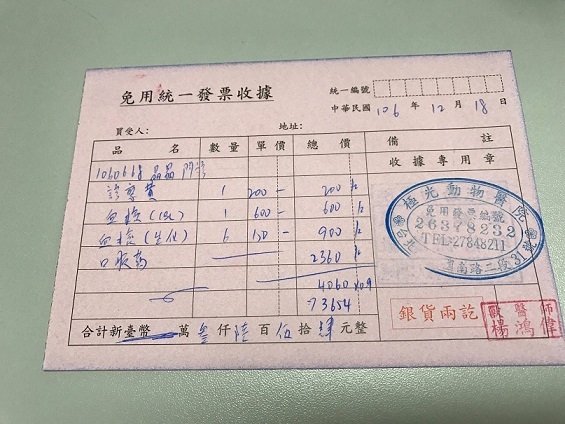 免用統一發票收據
統一編號
中華民國 106 年 12 月 18 日
買受人: 地址:
品名 數量 單價 總價 備註
收據專用章
1060668 晶晶 門診
診察費 1 200- 200
血檢 1 600- 600
血檢(生化) 6 150- 900
口服葯 2360
4060×0.9
=3654
合計新臺幣 萬 叁 仟 陸 百 伍 拾 肆 元整
極光動物醫院
免用發票編號
26378232
TEL:27848211
銀貨兩訖
獸醫師
楊鴻偉